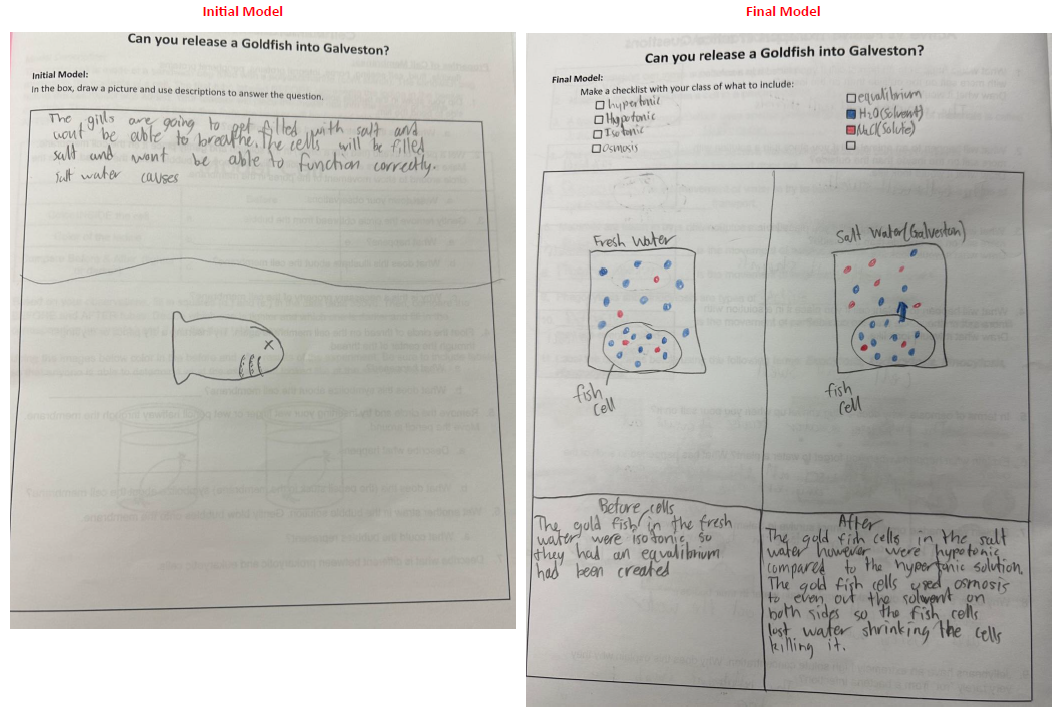 Initial Model
Final Model
Can you release a Goldfish into Galveston?
Initial Model:
In the box, draw a picture and use descriptions to answer the question.
The gills are going to get filled with salt and
wont be able to breathe. The cells will be filled
salt and wont be able to function correctly.
salt water causes
x
Can you release a Goldfish into Galveston?
Final Model:
Make a checklist with your class of what to include:
hypertonic
Hypotonic
Isotonic
Osmosis
equalibrium
H2O(Solvent)
NaCl(Solute)
Fresh Water
fish
cell
Salt Water(Galveston)
fish
cell
Before cells
The gold fish in the fresh
water were isotonic so
they had an equalibrium
had been created
After
The gold fish cells in the salt
water however were hypotonic
compared to the hypertonic solution.
The gold fish cells used osmosis
to even out the solvent on
both sides so the fish cells
lost water shrinking the cells
killing it.